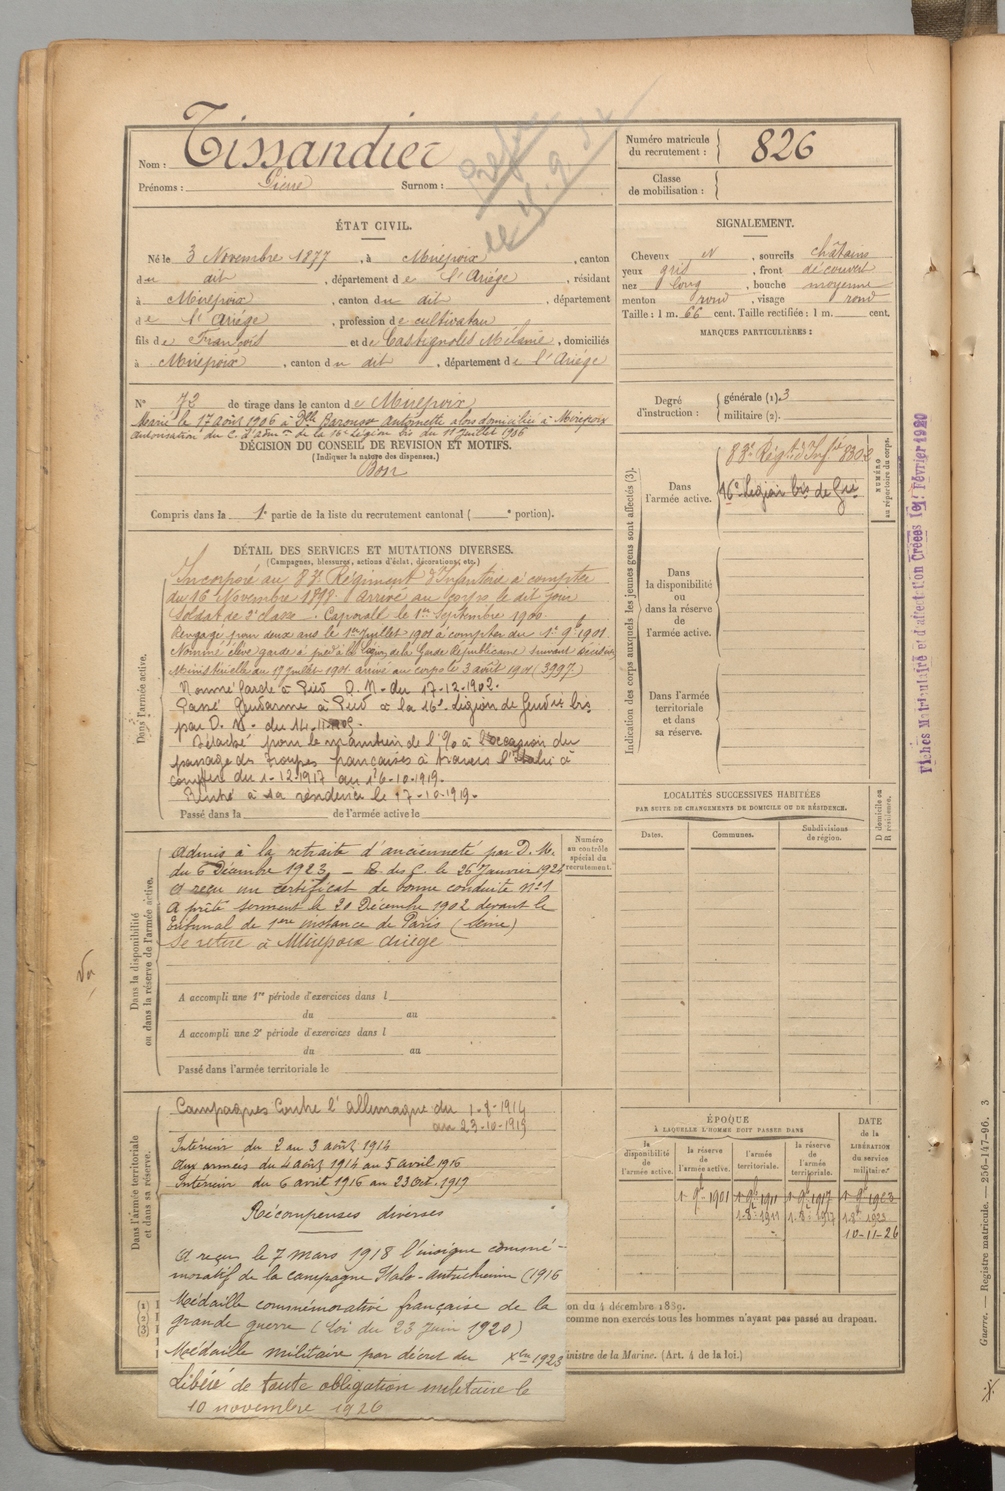 Nom : Tissandier
Prénoms : Pierre Surnom :
Numéro matricule du recrutement : 826
Classe de mobilisation :
ÉTAT CIVIL.
Né le 3 Novembre 1877, à Mirepoix, canton
du dit, département de l'Ariége, résidant
à Mirepoix, canton du dit, département
de l'Ariége, profession de cultivateur
fils de François et de Castignolles Mélanie, domiciliés
à Mirepoix, canton du dit, département de l'Ariége
N° 72 de tirage dans le canton de Mirepoix
Marié le 17 août 1906 à Dlle Barousse Antoinette alors domiciliée à Mirepoix
autorisation du C. d'adm.on de la 16e Légion bis du 11 Juillet 1906
DÉCISION DU CONSEIL DE REVISION ET MOTIFS.
(Indiquer la nature des dispenses.)
Bon
Compris dans la 1e partie de la liste du recrutement cantonal ( e portion).
SIGNALEMENT.
Cheveux N, sourcils châtains
yeux gris, front découvert
nez long, bouche moyenne
menton rond, visage rond
Taille : 1 m. 66 cent. Taille rectifiée : 1 m. cent.
MARQUES PARTICULIÈRES :
Degré d'instruction : générale (1). 3
militaire (2).
DÉTAIL DES SERVICES ET MUTATIONS DIVERSES.
(Campagnes, blessures, actions d'éclat, décorations, etc.)
Dans l'armée active.
Incorporé au 83e Régiment d'Infanterie à compter
du 16 Novembre 1898 arrivé au corps le dit jour
Soldat de 2e classe. Caporal le 1er Septembre 1900
Rengagé pour deux ans le 1er Juillet 1901 à compter du 1e 9bre 1901.
Nommé élève garde à pied à la Légion de la Garde Républicaine suivant décision
Ministérielle du 19 Juillet 1901 arrivé au corps le 3 août 1901 (3997)
Nommé Garde à Pied D. M. du 17-12-1902.
Passé Gendarme à Pied à la 16e Légion de Gendrie bis
par D. M. du 14-11-
Détaché pour le maintien de l'% à l'occasion du
passage des troupes françaises à travers l'Italie à
compter du 1-12-1917 au 16-10-1919.
Rentré à sa résidence le 17-10-1919.
Passé dans la de l'armée active le
Indication des corps auxquels les jeunes gens sont affectés (3).
Dans l'armée active.
83e Régt d'Infie
16e Légion bis de Gie
NUMÉRO au répertoire du corps.
Dans la disponibilité ou dans la réserve de l'armée active.
Dans l'armée territoriale et dans sa réserve.
Fiches Matriculaire et d'affectation Créées le 1er Février 1920
Dans la disponibilité ou dans la réserve de l'armée active.
Admis à la retraite d'ancienneté par D. M.
du 6 Décembre 1923 - R. des C. le 26 Janvier 1924
A reçu un certificat de bonne conduite n°1
A prêté serment le 20 Décembre 1902 devant le
Tribunal de 1ere instance de Paris (Seine)
Se retire à Mirepoix Ariège
Numéro au contrôle spécial du recrutement.
A accompli une 1re période d'exercices dans l
du au
A accompli une 2e période d'exercices dans l
du au
Passé dans l'armée territoriale le
LOCALITÉS SUCCESSIVES HABITÉES
PAR SUITE DE CHANGEMENTS DE DOMICILE OU DE RÉSIDENCE.
Dates. Communes. Subdivisions de région. D domicile ou R résidence.
Dans l'armée territoriale et dans sa réserve.
Campagnes Contre l'Allemagne du 1-8-1914
au 23-10-1919
Intérieur du 2 au 3 août 1914
Aux armées du 4 août 1914 au 5 avril 1916
Intérieur du 6 avril 1916 au 23 Oct. 1919
Récompenses diverses
A reçu le 7 mars 1918 l'insigne commé-
moratif de la campagne Italo-autrichienne (1916
Médaille commémorative française de la
grande guerre (loi du 23 Juin 1920)
Médaille militaire par décret du Xbre 1923
Libéré de toute obligation militaire le
10 novembre 1926
ÉPOQUE
À LAQUELLE L'HOMME DOIT PASSER DANS
la disponibilité de l'armée active. la réserve de l'armée active. l'armée territoriale. la réserve de l'armée territoriale. DATE de la LIBÉRATION du service militaire.
1er 9bre 1901 1er 9bre 1911 1er 9bre 1917 1er 9bre 1923
1.8bre 1911 1.8bre 1917 1.8bre 1923
10-11-26
on du 4 décembre 1889.
comme non exercés tous les hommes n'ayant pas passé au drapeau.
inistre de la Marine. (Art. 4 de la loi.)
Guerre. — Registre matricule. — 256-147-96. 3